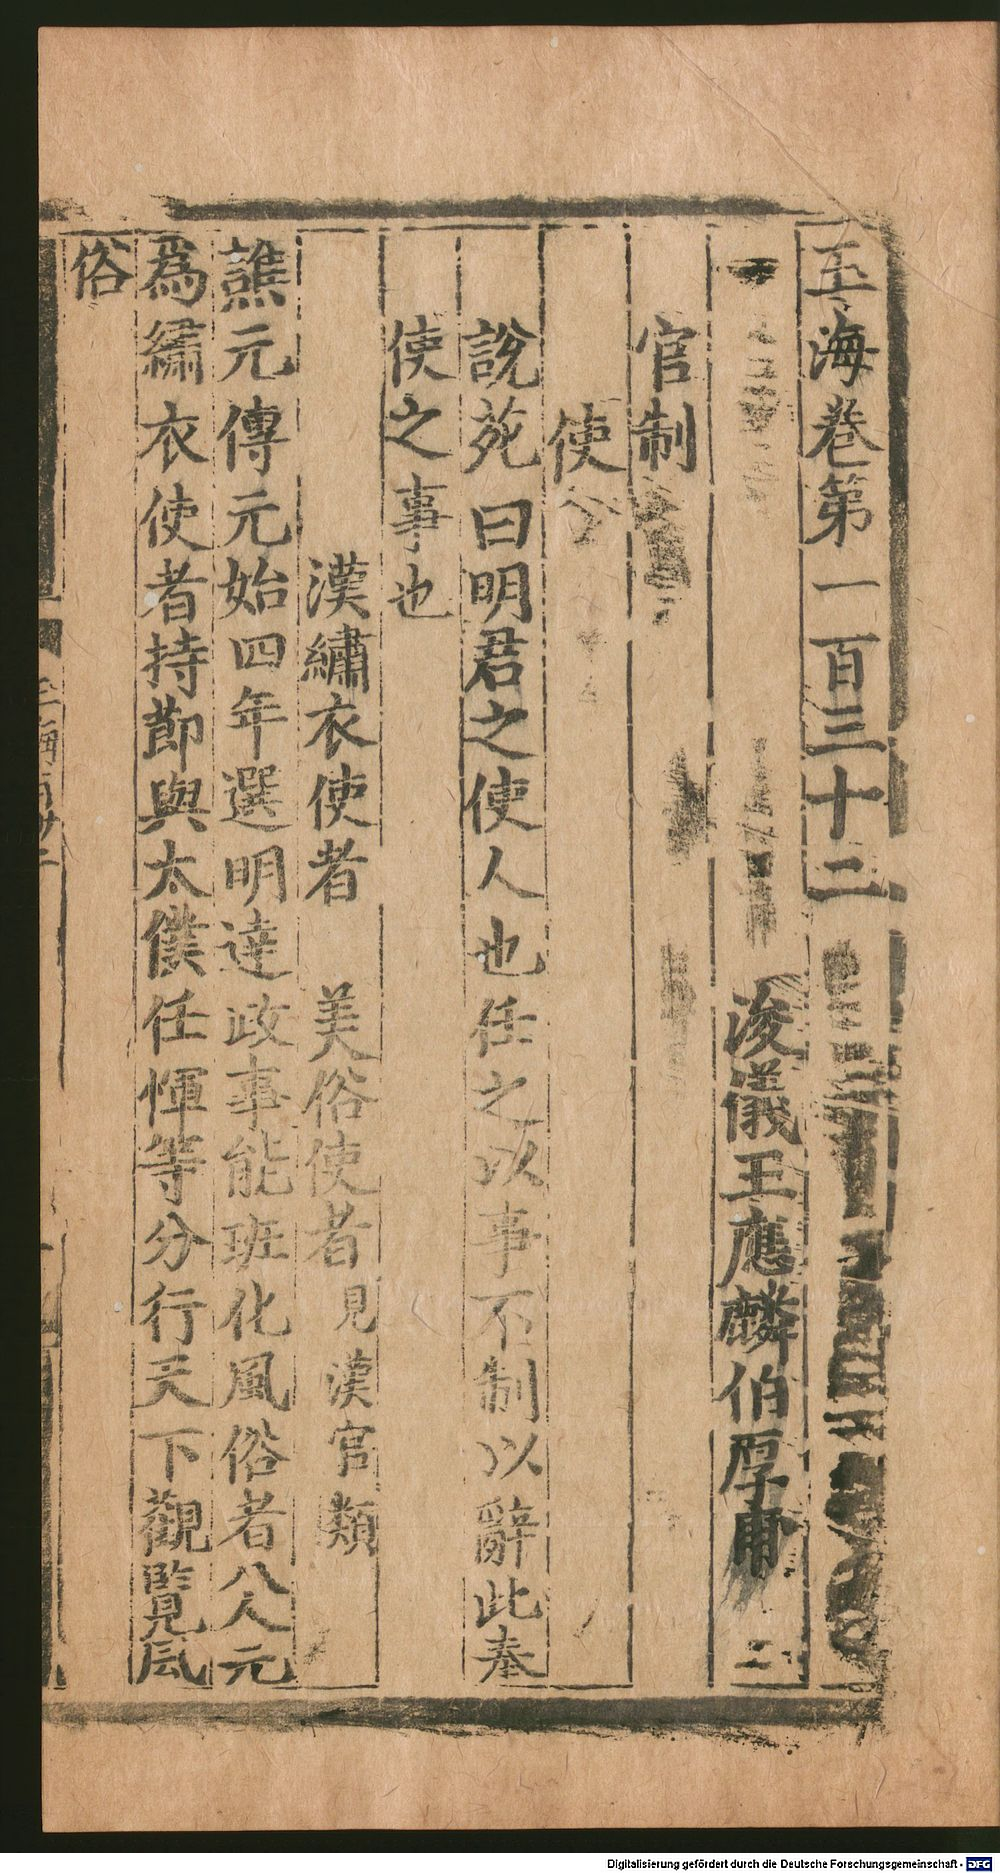 玉海卷第一百三十二
浚儀王應麟伯厚甫
官制
使
說苑曰明君之使人也任之以事不制以辭此奉
使之事也
漢繡衣使者 美俗使者見漢官類
譙元傳元始四年選明達政事能班化風俗者八人元
爲繡衣使者持節與太僕任惲等分行天下觀覽風
俗
Digitalisierung gefördert durch die Deutsche Forschungsgemeinschaft - DFG